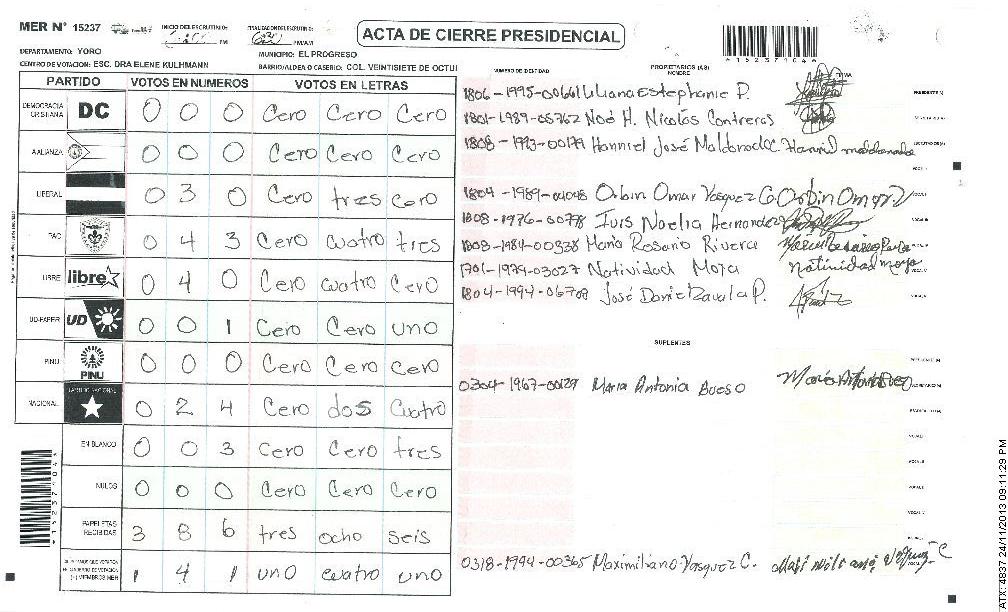 MER N° 15237
INICIO DEL ESCRUTINIO: PM
FINALIZACION DEL ESCRUTINIO: PM/AM
ACTA DE CIERRE PRESIDENCIAL
DEPARTAMENTO: YORO
MUNICIPIO: EL PROGRESO
CENTRO DE VOTACION: ESC. DRA ELENE KULHMANN
BARRIO/ALDEA O CASERIO: COL. VEINTISIETE DE OCTU
PARTIDO VOTOS EN NUMEROS VOTOS EN LETRAS
DEMOCRACIA CRISTIANA DC 0 0 0 Cero Cero Cero
ALIANZA 0 0 0 Cero Cero Cero
LIBERAL 0 3 0 Cero tres cero
PAC 0 4 3 Cero cuatro tres
LIBRE libre 0 4 0 Cero cuatro Cero
UD-FAPER UD 0 0 1 Cero Cero uno
PINU PINU 0 0 0 Cero Cero Cero
NACIONAL PARTIDO NACIONAL 0 2 4 Cero dos Cuatro
EN BLANCO 0 0 3 Cero Cero tres
NULOS 0 0 0 Cero Cero Cero
PAPELETAS RECIBIDAS 3 8 6 tres ocho seis
1 4 1 uno cuatro uno
NUMERO DE IDENTIDAD PROPIETARIOS (AS) NOMBRE FIRMA
1806-1995-00661 Liliana Estephanie P.
1801-1989-05762 Noé H. Nicolás Contreras
1808-1993-00179 Hanniel José Maldonado C. Hanniel maldonado
1804-1989-01048 Orbin Omar Vasquez G Orbin Omar V
1808-1976-00778 Iris Noelia Hernandez
1808-1984-00338 Maria Rosario Rivera
1701-1979-03027 Natividad Moya natividad moya
1804-1994-06708 José Daniel Zavala P.
SUPLENTES
0304-1967-00129 Maria Antonia Bueso
0318-1994-00365 Maximiliano Vasquez C.
152371043
ATX: 4837 24/11/2013 09:11:29 PM